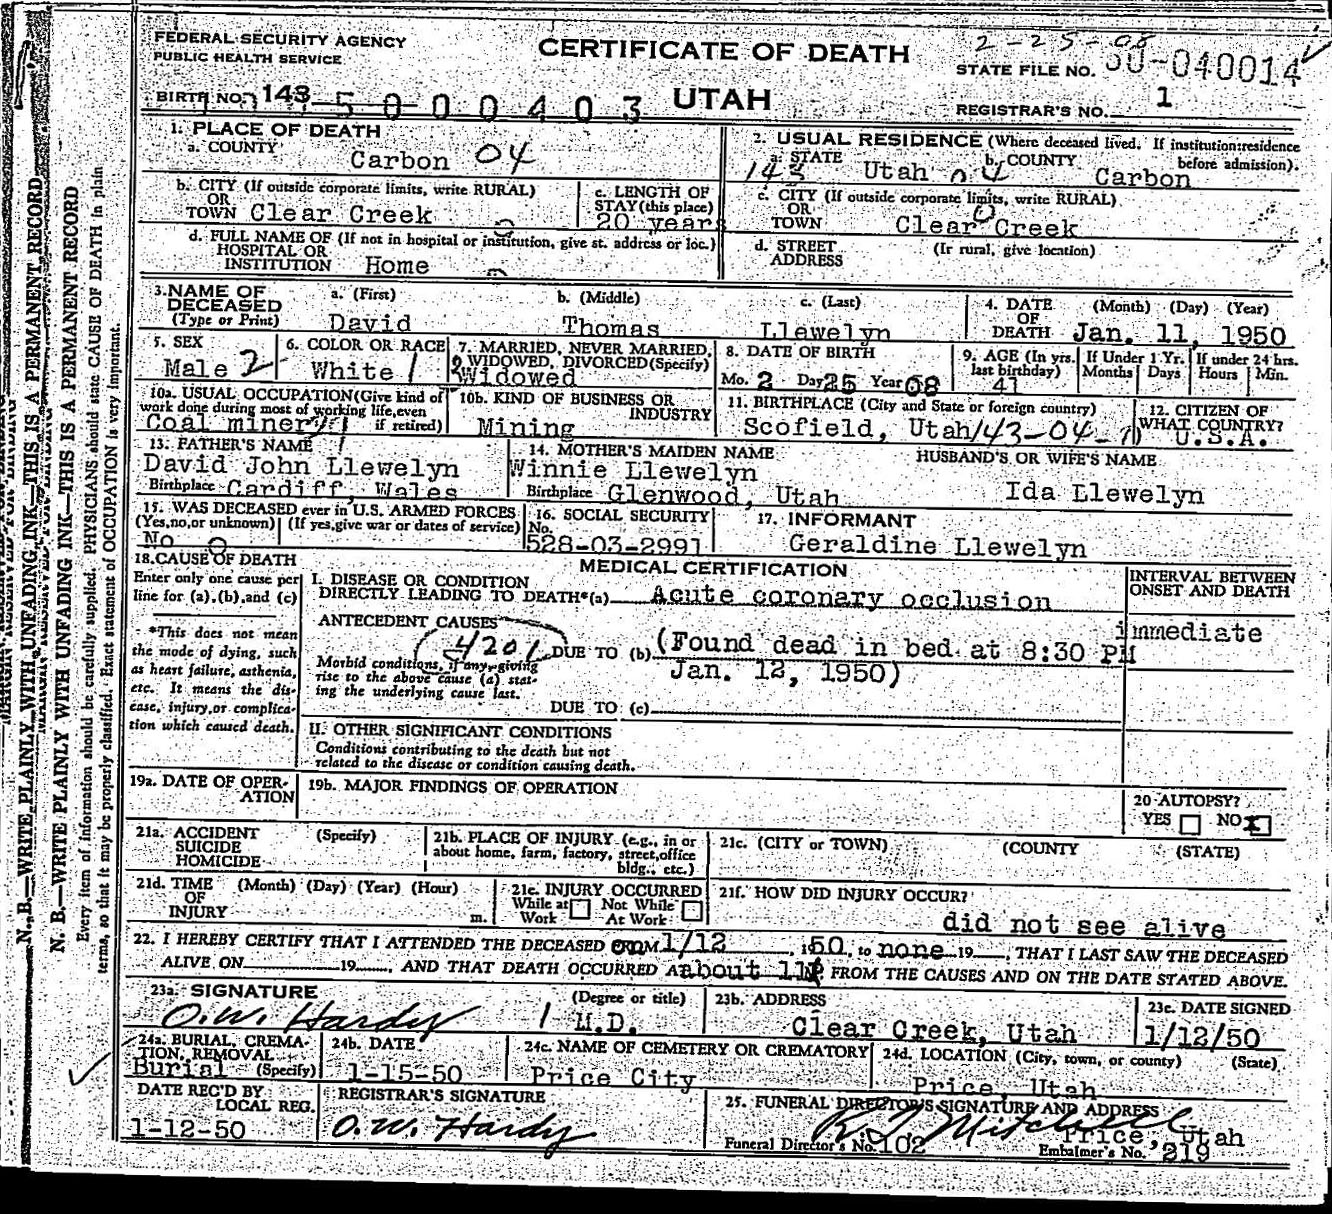 FEDERAL SECURITY AGENCY
PUBLIC HEALTH SERVICE
CERTIFICATE OF DEATH
2-25-08
STATE FILE NO. 50-040014
BIRTH NO. 143 5 0 0 0 4 0 3
UTAH
REGISTRAR'S NO. 1
1. PLACE OF DEATH
a. COUNTY Carbon 04
2. USUAL RESIDENCE (Where deceased lived. If institution: residence before admission).
a. STATE 143 Utah 04 b. COUNTY Carbon
b. CITY (If outside corporate limits, write RURAL) OR TOWN Clear Creek
c. LENGTH OF STAY (this place) 20 years
c. CITY (If outside corporate limits, write RURAL) OR TOWN Clear Creek
d. FULL NAME OF (If not in hospital or institution, give st. address or loc.) HOSPITAL OR INSTITUTION Home
d. STREET ADDRESS (If rural, give location)
3. NAME OF DECEASED (Type or Print) a. (First) David b. (Middle) Thomas c. (Last) Llewelyn
4. DATE OF DEATH (Month) (Day) (Year) Jan. 11, 1950
5. SEX Male 2
6. COLOR OR RACE White 1
7. MARRIED, NEVER MARRIED, WIDOWED, DIVORCED (Specify) Widowed
8. DATE OF BIRTH Mo. 2 Day 25 Year 08
9. AGE (In yrs. last birthday) 41
If Under 1 Yr. Months Days
If under 24 hrs. Hours Min.
10a. USUAL OCCUPATION (Give kind of work done during most of working life, even if retired) Coal miner
10b. KIND OF BUSINESS OR INDUSTRY Mining
11. BIRTHPLACE (City and State or foreign country) Scofield, Utah 143-04-
12. CITIZEN OF WHAT COUNTRY? U.S.A.
13. FATHER'S NAME David John Llewelyn
Birthplace Cardiff, Wales
14. MOTHER'S MAIDEN NAME Winnie Llewelyn
Birthplace Glenwood, Utah
HUSBAND'S OR WIFE'S NAME Ida Llewelyn
15. WAS DECEASED ever in U.S. ARMED FORCES (Yes, no, or unknown) (If yes, give war or dates of service) No
16. SOCIAL SECURITY No. 528-03-2991
17. INFORMANT Geraldine Llewelyn
18. CAUSE OF DEATH
Enter only one cause per line for (a), (b), and (c)
*This does not mean the mode of dying, such as heart failure, asthenia, etc. It means the disease, injury, or complication which caused death.
MEDICAL CERTIFICATION
I. DISEASE OR CONDITION DIRECTLY LEADING TO DEATH*(a) Acute coronary occlusion
INTERVAL BETWEEN ONSET AND DEATH
immediate
ANTECEDENT CAUSES
4201
Morbid conditions, if any, giving rise to the above cause (a) stating the underlying cause last.
DUE TO (b) (Found dead in bed at 8:30 PM
Jan. 12, 1950)
DUE TO (c)
II. OTHER SIGNIFICANT CONDITIONS
Conditions contributing to the death but not related to the disease or condition causing death.
19a. DATE OF OPERATION
19b. MAJOR FINDINGS OF OPERATION
20 AUTOPSY? YES NO X
21a. ACCIDENT SUICIDE HOMICIDE (Specify)
21b. PLACE OF INJURY (e.g., in or about home, farm, factory, street, office bldg., etc.)
21c. (CITY or TOWN) (COUNTY (STATE)
21d. TIME OF INJURY (Month) (Day) (Year) (Hour) m.
21e. INJURY OCCURRED While at Work Not While At Work
21f. HOW DID INJURY OCCUR?
did not see alive
22. I HEREBY CERTIFY THAT I ATTENDED THE DECEASED on 1/12, 1950, to none 19__, THAT I LAST SAW THE DECEASED
ALIVE ON 19__, AND THAT DEATH OCCURRED At about 11P FROM THE CAUSES AND ON THE DATE STATED ABOVE.
23a. SIGNATURE O.W. Hardy (Degree or title) M.D.
23b. ADDRESS Clear Creek, Utah
23c. DATE SIGNED 1/12/50
24a. BURIAL, CREMATION, REMOVAL (Specify) Burial
24b. DATE 1-15-50
24c. NAME OF CEMETERY OR CREMATORY Price City
24d. LOCATION (City, town, or county) (State) Price, Utah
DATE REC'D BY LOCAL REG. 1-12-50
REGISTRAR'S SIGNATURE O.W. Hardy
25. FUNERAL DIRECTOR'S SIGNATURE AND ADDRESS R J Mitchell Price, Utah
Funeral Director's No. 102
Embalmer's No. 219
N. B.—WRITE PLAINLY WITH UNFADING INK—THIS IS A PERMANENT RECORD
N. B.—WRITE PLAINLY WITH UNFADING INK—THIS IS A PERMANENT RECORD
Every item of information should be carefully supplied. PHYSICIANS should state CAUSE OF DEATH in plain
terms, so that it may be properly classified. Exact statement of OCCUPATION is very important.